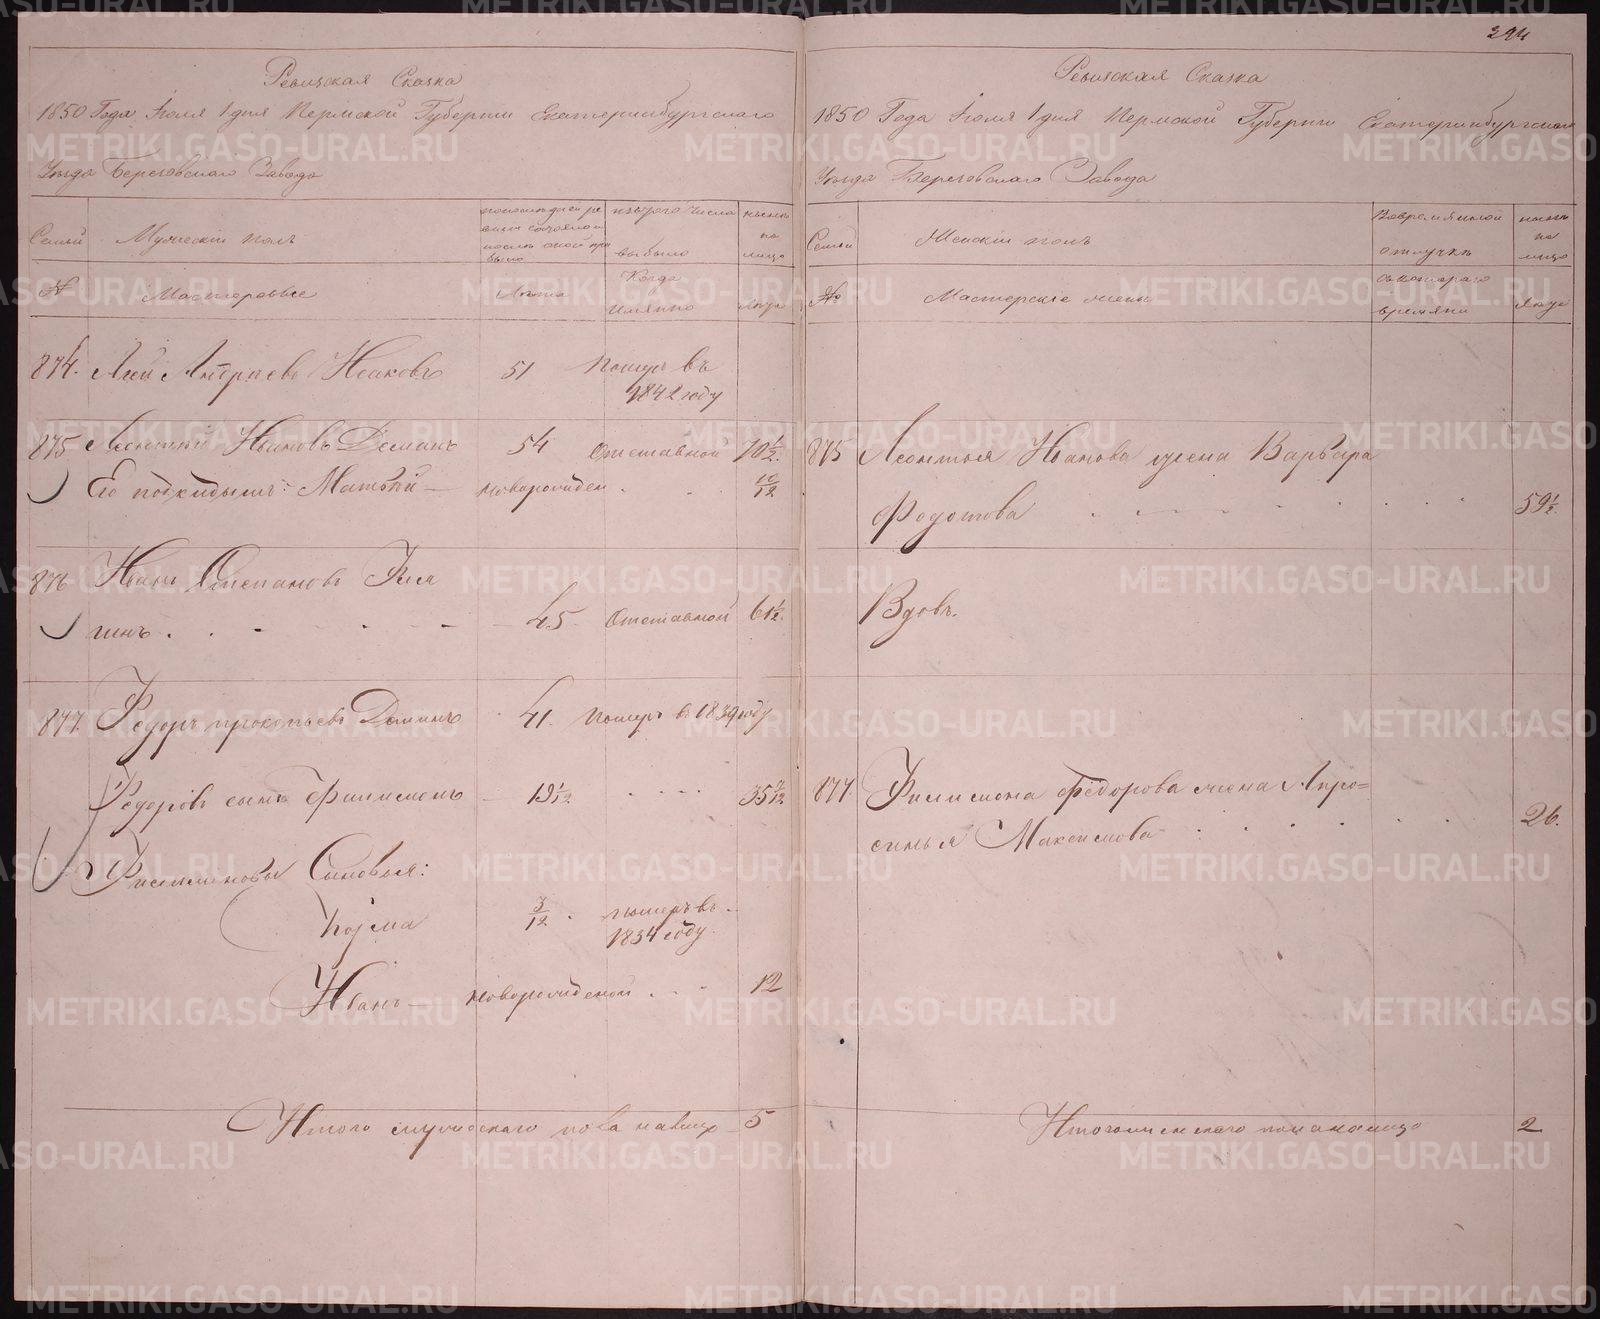 294
Ревизская Сказка
1850 Года Июля 1 дня Пермской Губернии Екатеринбургского
Уезда Березовского Завода
Семьи
Мужеский полъ
по последней ре
визии состояло и
после оной при
было
изъ того числа
выбыло
ныне
на
лицо
№
Мастеровые
Лета
Когда
имянно
Лета
874. Андреевъ Исаковъ 51 Померъ въ
1842 году
875 Леонтий Ивановъ Деминъ 54 Отставной 70 1/2.
Его подкидышъ: Матвей — новорожден . . . 10/12
876 Иванъ Степановъ
гинъ . . . - . - - 45 Отставной 61 1/2.
877. Федоръ прокопьевъ Деминъ 41. Померъ въ 1839 году
Федоровъ сынъ Филимонъ 19 1/12 . - - - 35 7/12
Филимоновы Сыновья:
Козма 3/12 . померъ въ
1834 году
Иванъ — новорожденой . . - 12
Итого мужескаго пола на лицо 5
Ревизская Сказка
1850 Года Июля 1 дня Пермской Губернии Екатеринбургского
Уезда Березовского Завода
Семьи
Женский полъ
Во временной
отлучке
ныне
на
лицо
№
Мастерские жены
съ котораго
времяни
Лета
875 Леонтья Иванова жена Варвара
Федотова . - - - - . . . 59 1/2.
Вдовъ.
877 Филимона Федорова жена Апро=
синья Максимова . . . . . . 26.
Итого женскаго пола на лицо 2
METRIKI.GASO-URAL.RU